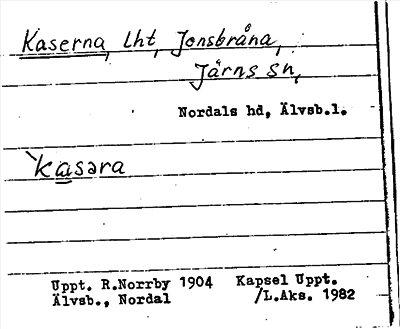 Kaserna, lht, Jonsbråna,
Järns sn,
Nordals hd, Älvsb.l.
`kasəra
Uppt. R.Norrby 1904 Kapsel Uppt.
Älvsb., Nordal /L.Aks. 1982